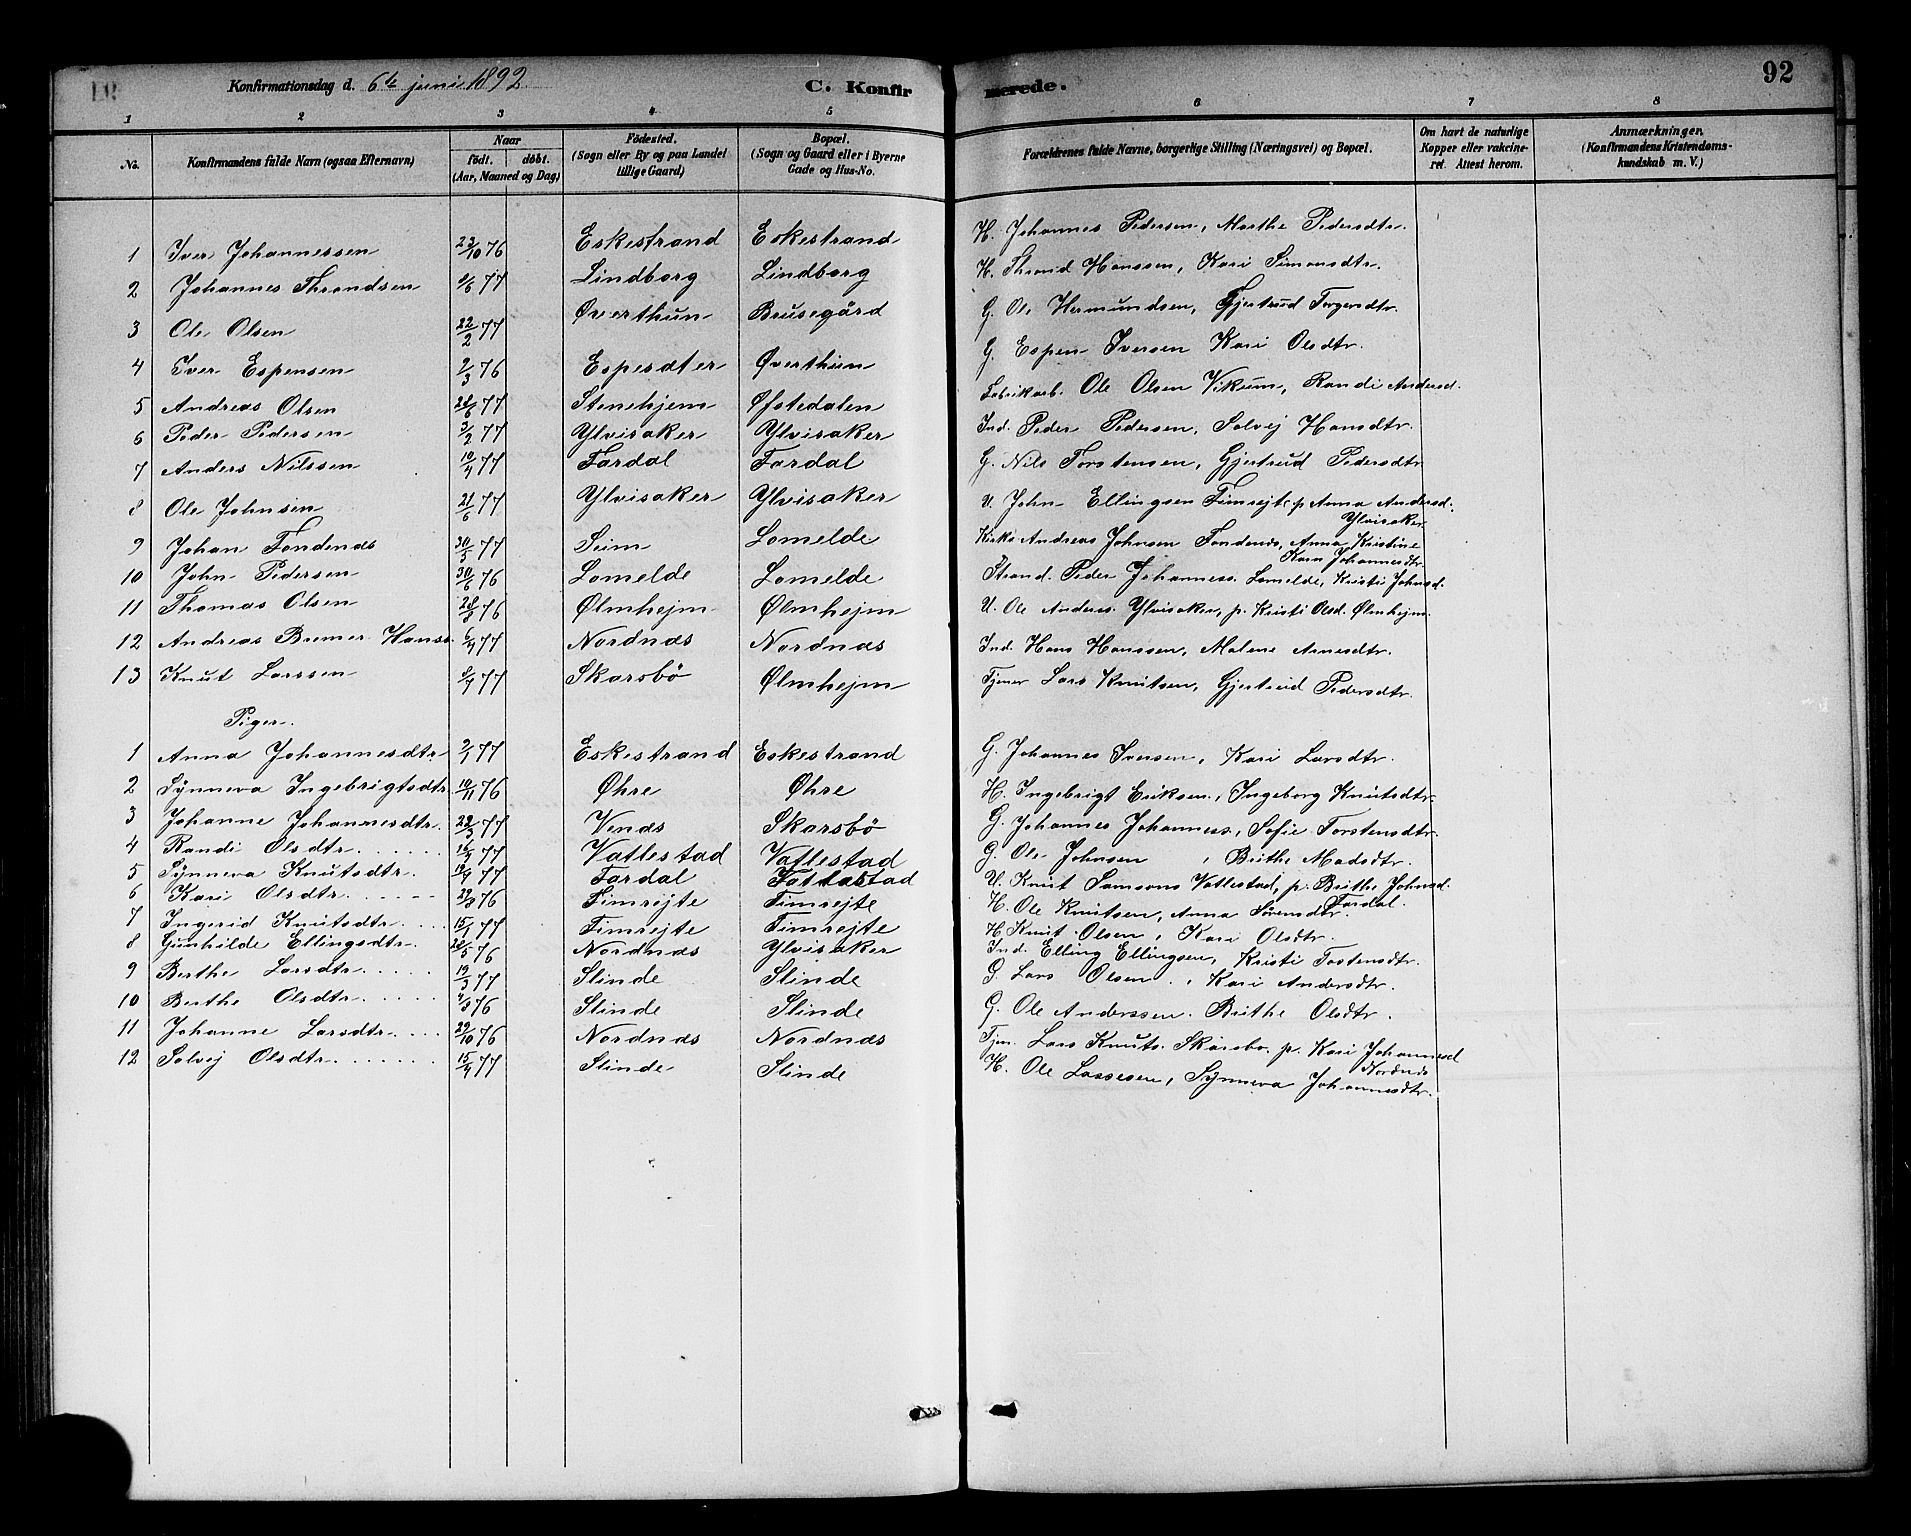 Konfirmationsdag d. 6te juni 1892. C. Konfirmerede. 92
1 2 3 4 5 6 7 8
No. Konfirmandens fulde Navn (ogsaa Efternavn) Naar født. døbt. (Aar, Maaned og Dag) Fødested. (Sogn eller By og paa Landet tillige Gaard) Bopæl. (Sogn og Gaard eller i Byerne Gade og Hus-No. Forældrenes fulde Navne, borgerlige Stilling (Næringsvei) og Bopæl. Om havt de naturlige Kopper eller vakcineret. Attest herom. Anmærkninger. (Konfirmandens Kristendomskundskab m. V.)
1 Iver Johannessen 23/10 76 Eskestrand Eskestrand H. Johannes Pedersen, Marthe Pedersdtr.
2 Johannes Throndsen /6 77 Lindborg Lindborg H. Thrond Hanssen, Kari Simonsdtr.
3 Ole Olsen 22/2 77 Øverthun Brusegård G. Ole Hermundsen, Gjertrud Torgersdtr.
4 Iver Espensen 2/3 76 Espesæter Øverthun G. Espen Iversen Kari Olsdtr.
5 Andreas Olsen 28/6 77 Stenehjem Øfstedalen Fabrikarb. Ole Olsen Vikum, Randi Andersd.
6 Peder Pedersen 3/2 77 Ylvisaker Ylvisaker Ind. Peder Pedersen, Solvej Hansdtr.
7 Anders Nilssen 10/4 77 Fardal Fardal G. Nils Torstensen, Gjertrud Pedersdtr.
8 Ole Johnsen 21/6 77 Ylvisaker Ylvisaker U. John Ellingsen Fimrejte p. Anna Andersd. Ylvisaker
9 Johan Fondenæs 30/5 77 Seim Lomelde Kirks. Andreas Johnsen Fondenæs, Anna Kristine Karn Johannesdtr.
10 John Pedersen 30/6 76 Lomelde Lomelde Strand. Peder Johanness. Lomelde, Kristi Johnsd.
11 Thomas Olsen 28/8 76 Ølmhejm Ølmhejm U. Ole Anders. Ylvisaker, p. Kristi Olsd. Ølmhejm.
12 Andreas Bremer Hanss. 6/4 77 Nordnæs Nordnæs Ind. Hans Hanssen, Malene Arnesdtr.
13 Knut Larssen 8/4 77 Skarsbø Ølmhejm Tjener Lars Knutsen, Gjertrud Pedersdtr.
Piger.
1 Anna Johannesdtr. 2/1 77 Eskestrand Eskestrand G. Johannes Iversen, Kari Larsdtr.
2 Synneva Ingebrigtsdtr. 10/11 76 Øhre Øhre H. Ingebrigt Eriksen, Ingeborg Knutsdtr.
3 Johanne Johannesdtr. 22/3 77 Venæs Skarsbø G. Johannes Johanness., Sofie Torstensdtr.
4 Randi Olsdtr. 16/4 77 Vatlestad Vatlestad G. Ole Johnsen, Brithe Madsdtr.
5 Synneva Knutsdtr. 18/4 77 Fardal U. Knut Samsons. Vatlestad, p. Brithe Johnsd. Fardal.
6 Kari Olsdtr. 22/8 76 Fimrejte Fimrejte H. Ole Knutsen, Anna Sørensdtr.
7 Ingerid Knutsdtr. 15/1 77 Fimrejte Fimrejte H. Knut Olsen, Kari Olsdtr.
8 Gunhilde Ellingsdtr. 28/5 76 Nordnæs Ylvisaker Ind. Elling Ellingsen, Kristi Tostensdtr.
9 Berthe Larsdtr. 19/3 77 Slinde Slinde G. Lars Olsen, Kari Andersdtr.
10 Berthe Olsdtr. 4/8 76 Slinde Slinde G. Ole Anderssen. Brithe Olsdtr.
11 Johanne Larsdtr. 29/10 76 Nordnæs Nordnæs Tjen. Lars Knuts. Skarsbø. p. Kari Johannesd Nordnæs
12 Solvej Olsdtr. 15/4 77 Slinde Slinde H. Ole Lassesen, Synneva Johannesdtr.